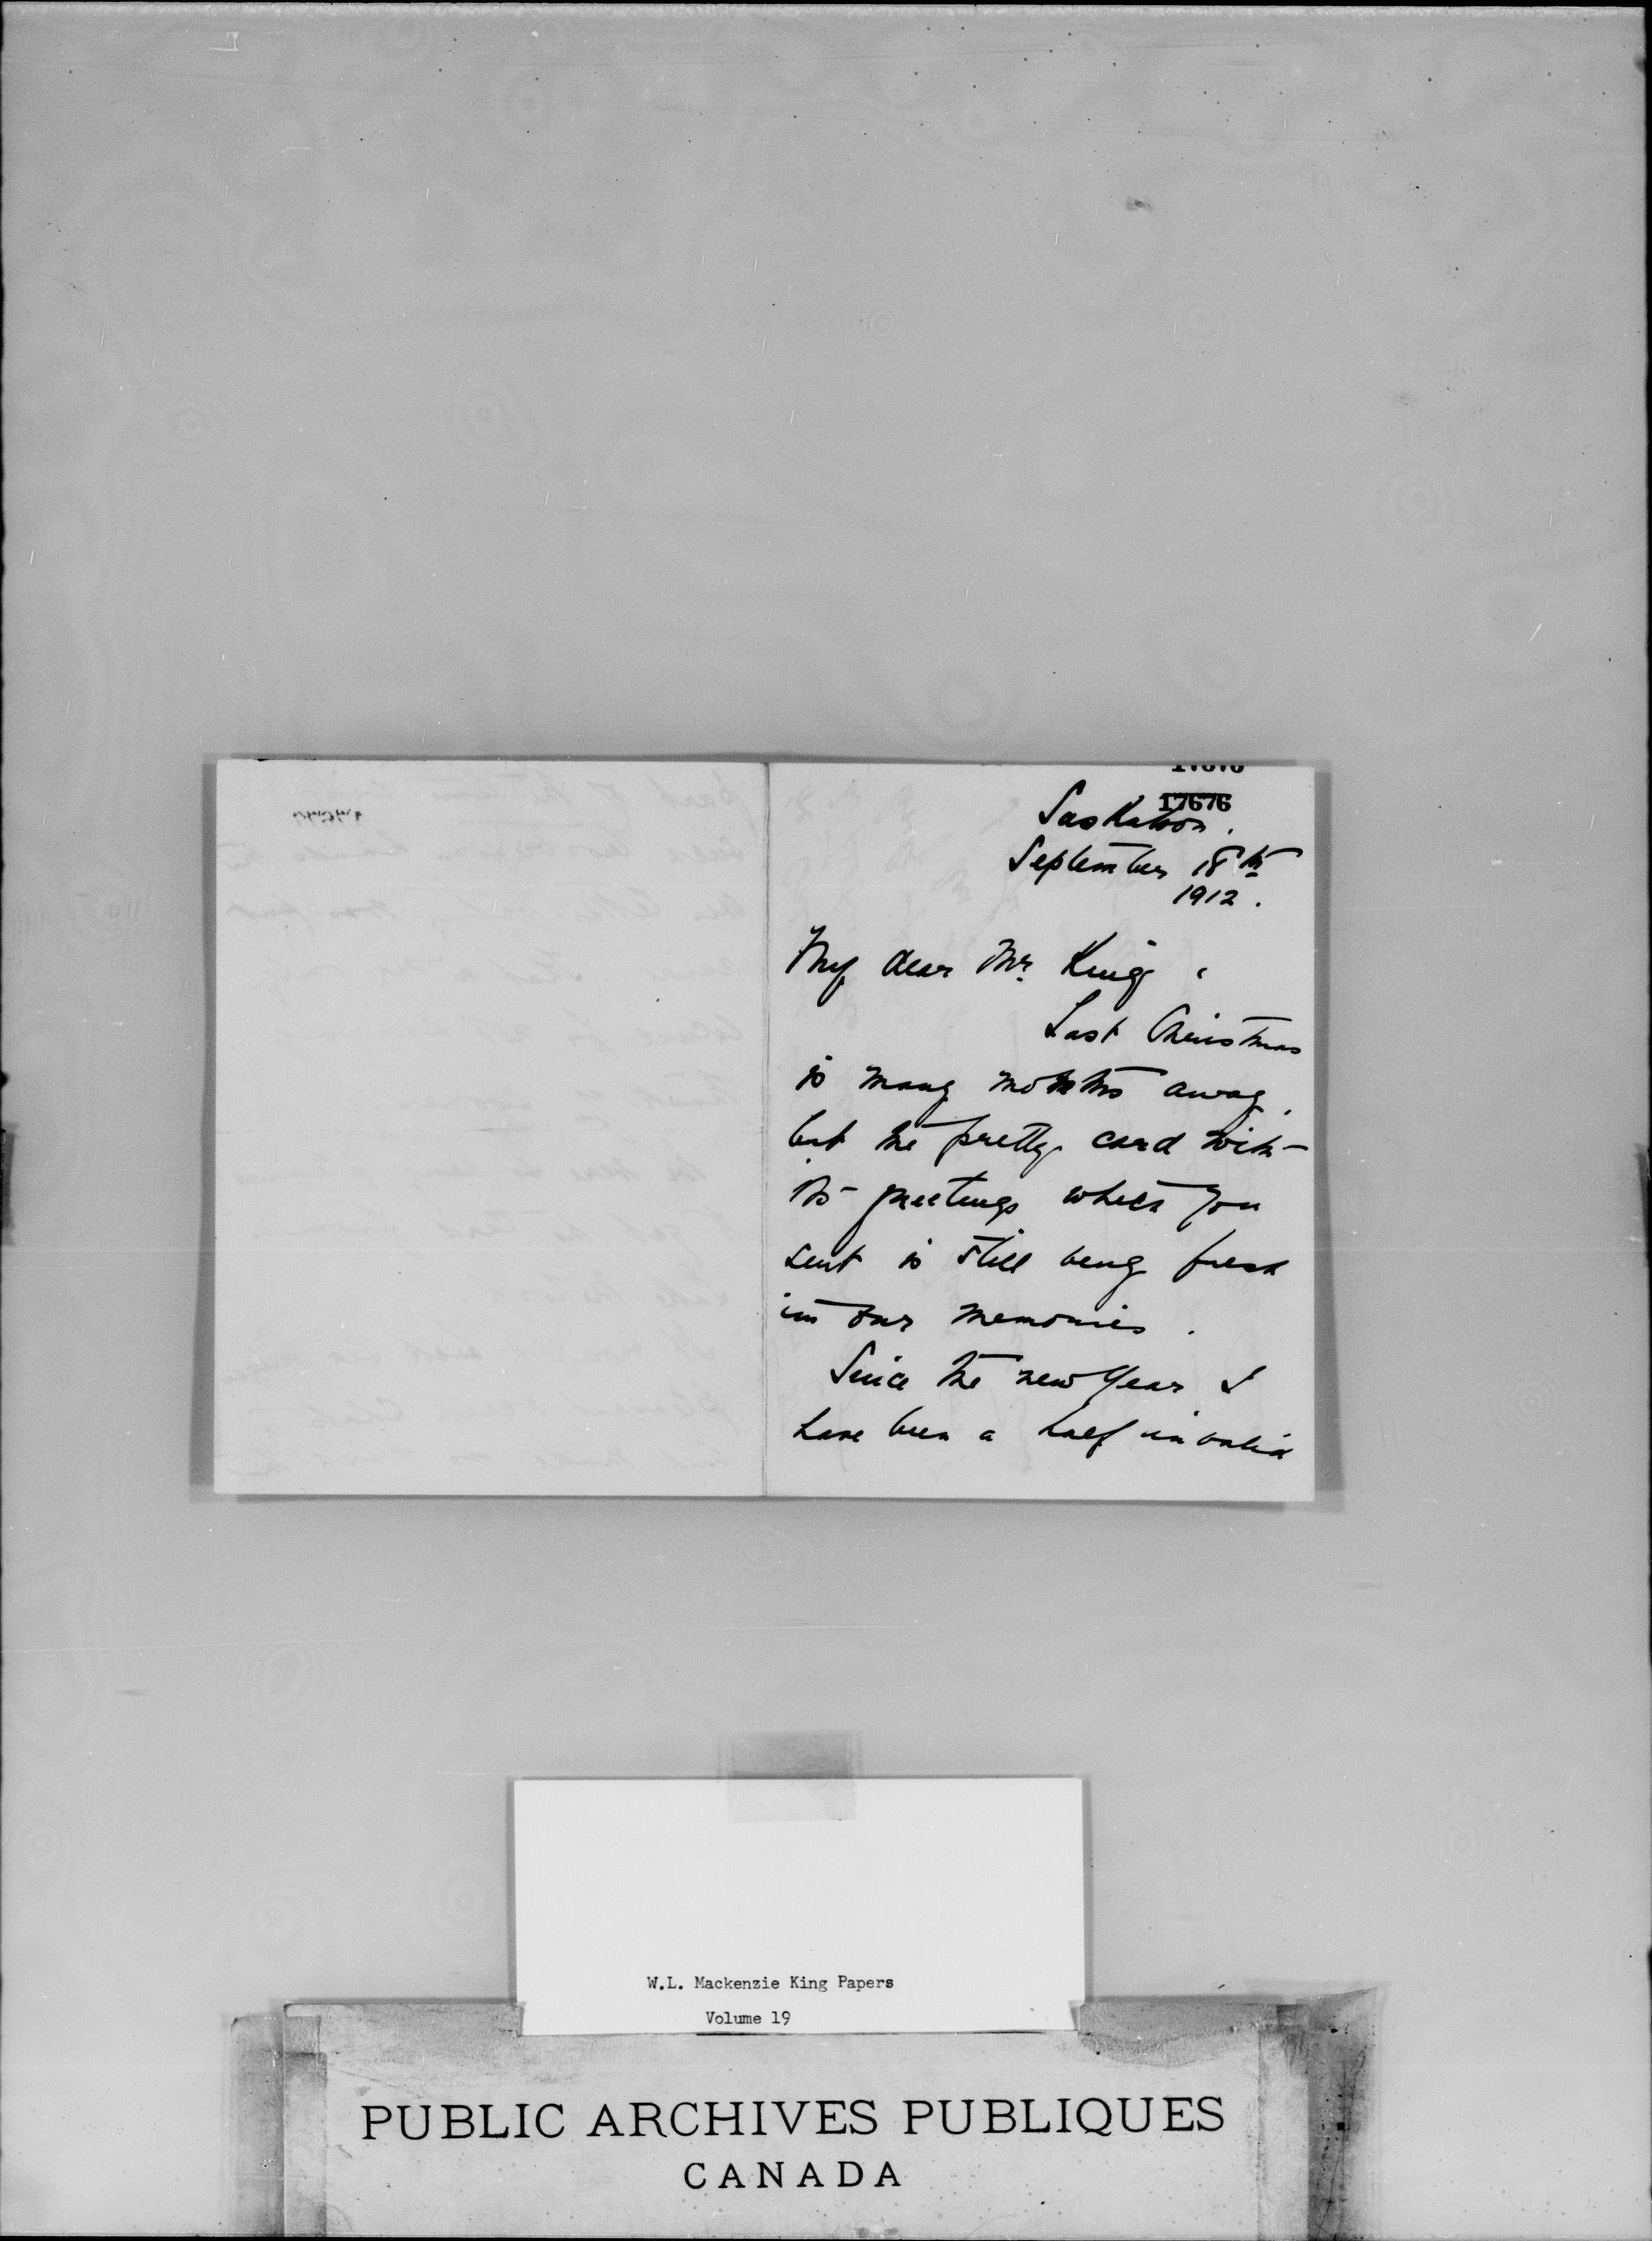 17676
Saskatoon.
September 18th
1912.
My dear Mr. King,
Last Christmas
is many months away,
but the pretty card with
its greetings which you
sent is still very fresh
in our memories.
Since the new Year I
have been a half invalid
W.L. Mackenzie King Papers
Volume 19
PUBLIC ARCHIVES PUBLIQUES
CANADA